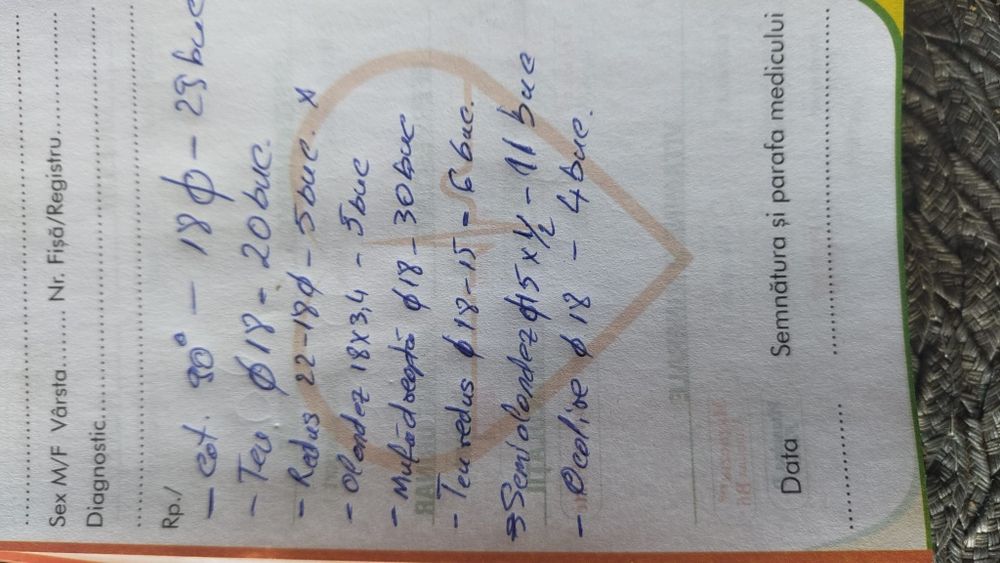 Sex M/F Vârsta........ Nr. Fișă/Registru..............
Diagnostic.......................................................
Rp./
- Cot. 90° - 18 ϕ - 29 buc
- Teu ϕ 18 - 20 buc.
- Redus 22-18 ϕ - 5 buc. x
- Olandez 18x3,4 - 5 buc
- Mufă dreaptă ϕ 18 - 30 buc
- Teu redus ϕ 18-15 - 6 buc.
- Semiolandez ϕ 15 x 1/2 - 11 buc
- Ocolire ϕ 18 - 4 buc.
Data Semnătura și parafa medicului